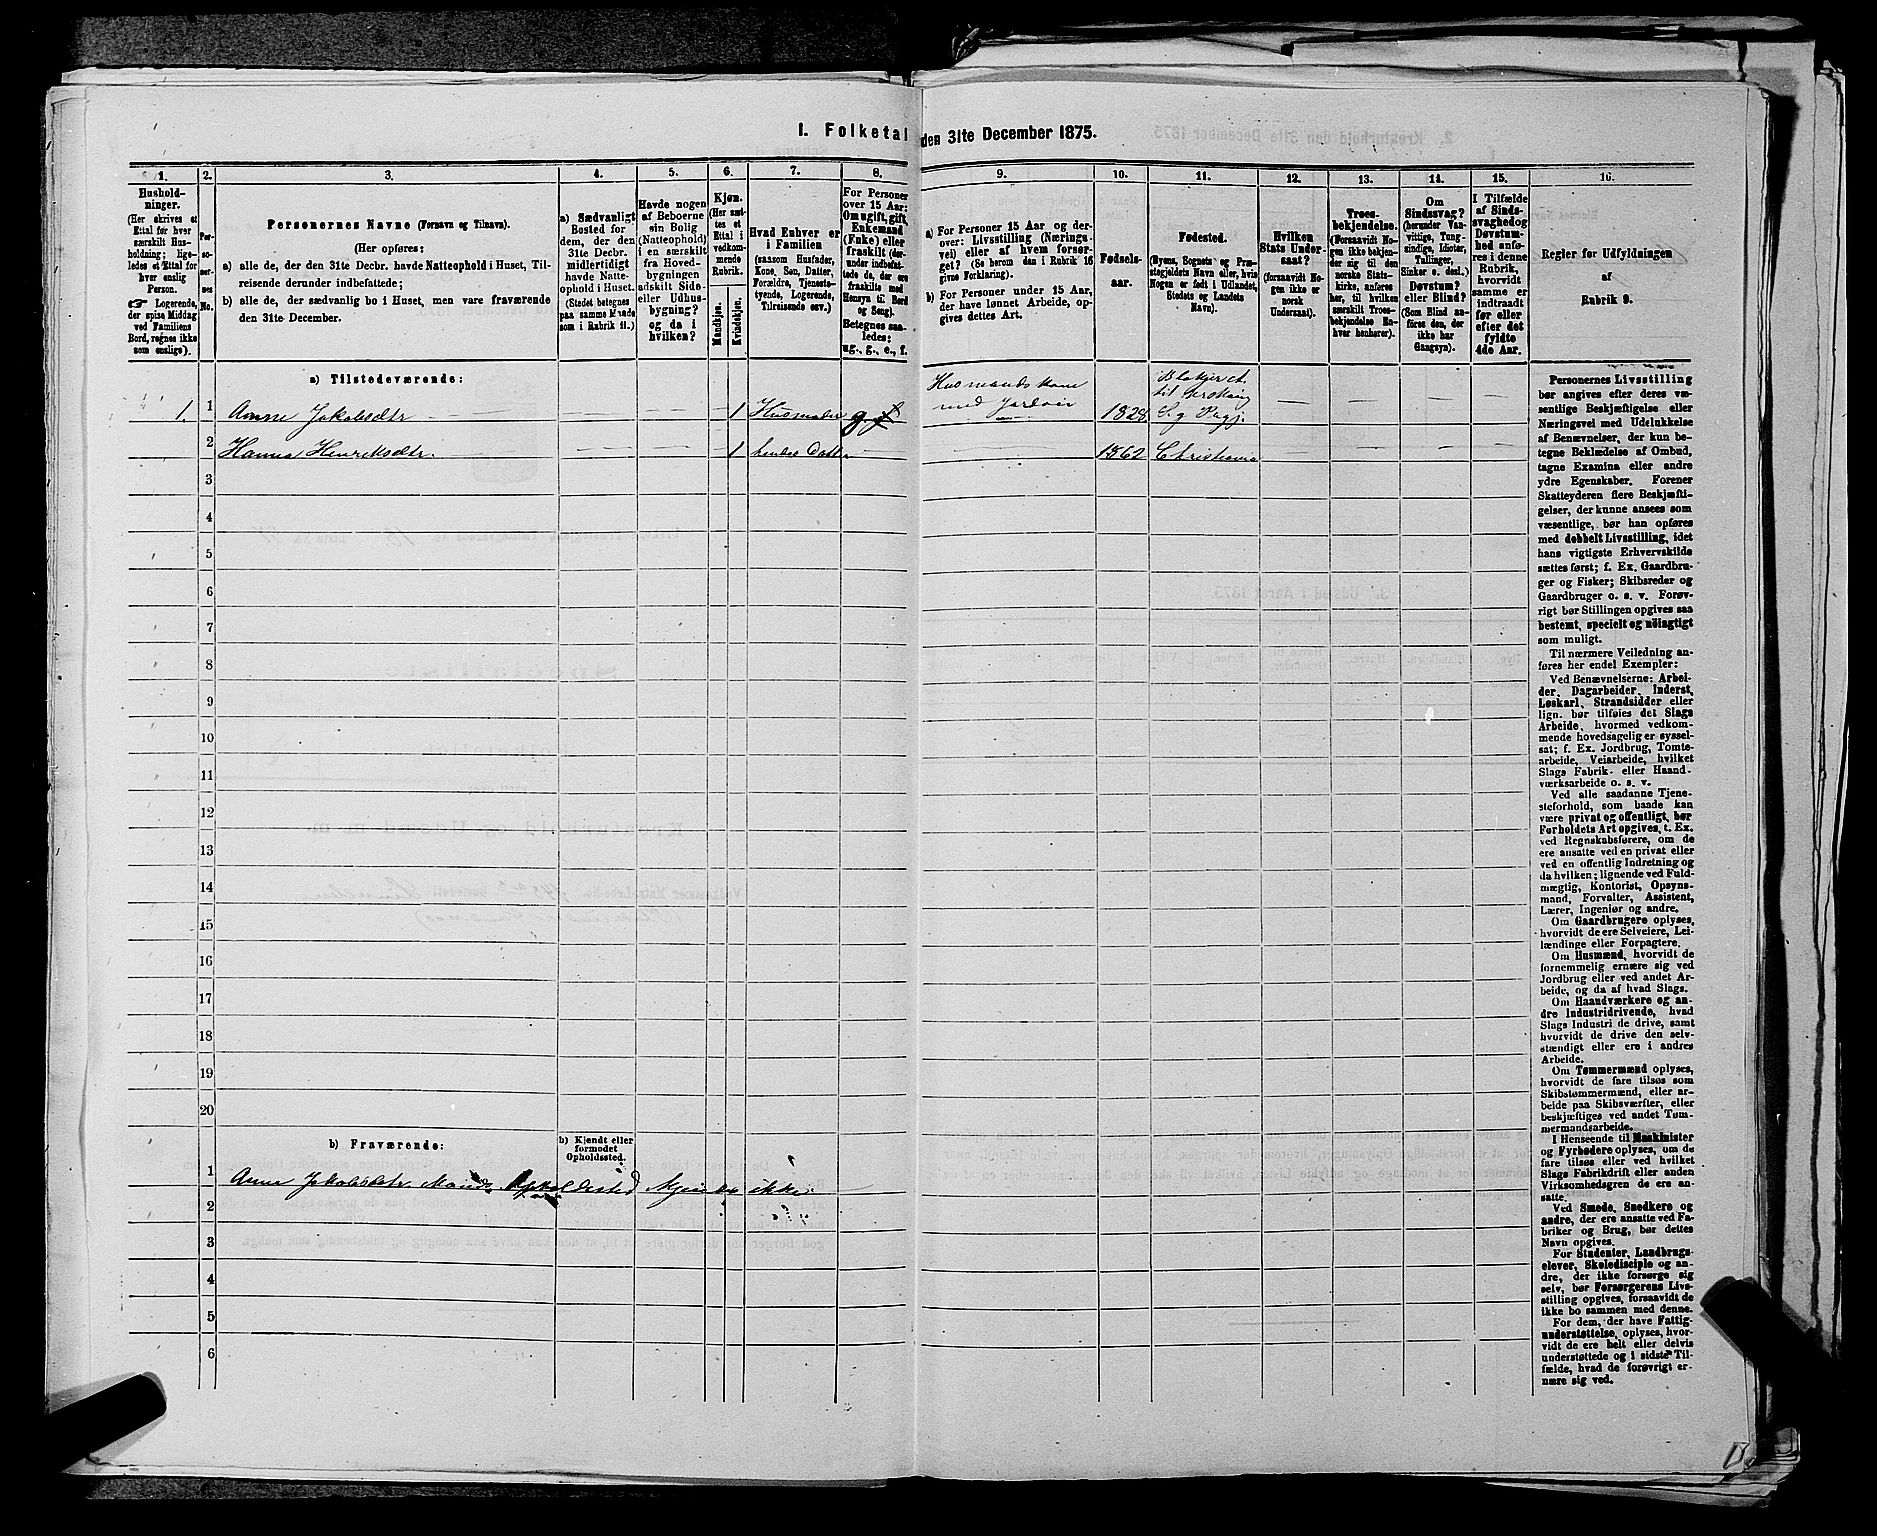 I. Folketal den 31te December 1875.
1.
Hushold-
ninger.
(Her skrives et
Ettal for hver
særskilt Hus-
holdning; lige-
ledes et Ettal for
hver enslig
Person.
☞ Logerende,
der spise Middag
ved Familiens
Bord, regnes ikke
som enslige).
2.
Per-
soner-
nes
No.
3.
Personernes Navne (Fornavn og Tilnavn).
(Her opføres:
a) alle de, der den 31te Decbr. havde Natteophold i Huset, Til-
reisende derunder indbefattede;
b) alle de, der sædvanlig bo i Huset, men vare fraværende
den 31te December.
4.
a) Sædvanligt
Bosted for
dem, der den
31te Decbr.
midlertidigt
havde Natte-
ophold i Huset.
(Stedet betegnes
paa samme Maade
som i Rubrik 11.)
5.
Havde nogen
af Beboerne
sin Bolig
(Natteophold)
i en særskilt
fra Hoved-
bygningen
adskilt Side-
eller Udhus-
bygning?
og da i
hvilken?
6.
Kjøn.
(Her sæt-
tes et
Ettal i
vedkom-
mende
Rubrik.
Mandkjøn.
Kvindekjøn.
7.
Hvad Enhver er
i Familien
(saasom Husfader,
Kone, Søn, Datter,
Forældre, Tjeneste-
tyende, Logerende,
Tilreisende osv.)
8.
For Personer
over 15 Aar:
Om ugift, gift,
Enkemand
(Enke) eller
fraskilt (der-
under indbefat-
tede de, der ere
fraskilte med
Hensyn til Bord
og Seng).
Betegnes saa-
ledes:
ug., g., e., f.
9.
a) For Personer 15 Aar og der-
over: Livsstilling (Nærings-
vei) eller af hvem forsør-
get? (Se herom den i Rubrik 16
givne Forklaring).
b) For Personer under 15 Aar,
der have lønnet Arbeide, op-
gives dettes Art.
10.
Fødsels-
aar.
11.
Fødested.
(Byens, Sognets og Præ-
stegjeldets Navn eller, hvis
Nogen er født i Udlandet,
Stedets og Landets
Navn).
12.
Hvilken
Stats Under-
saat?
(forsaavidt No-
gen ikke er
norsk
Undersaat).
13.
Troes-
bekjendelse.
(Forsaavidt No-
gen ikke bekjen-
der sig til den
norske Stats-
kirke, anføres
her, til hvilken
særskilt Troes-
bekjendelse En-
hver henhører).
14.
Om
Sindssvag?
(herunder Van-
vittige, Tung-
sindige, Idioter,
Tallinger,
Sinker o. desl.)
Døvstum?
eller Blind?
(Som Blind an-
føres den, der
ikke har
Gangsyn).
15.
I Tilfælde
af Sinds-
svaghed og
Døvstum-
hed anfø-
res i denne
Rubrik,
hvorvidt
samme er
indtraadt
før eller
efter det
fyldte
4de Aar.
16.
Regler for Udfyldningen
af
Rubrik 9.
a) Tilstedeværende:
1. 1 Anne Jakobsdtr — — — 1 Husmoder g. Husmandskone med Jordvei 1828
2 Hanna Henriksdtr. — — — 1 hendes Datter — — 1862 Christiania — — — —
3
4
5
6
7
8
9
10
11
12
13
14
15
16
17
18
19
20
b) Fraværende:
b) Kjendt eller
formodet
Opholdssted.
1 Anne Jakobsdtr Mands Opholdssted kjendes ikke.
2
3
4
5
6
Personernes Livsstilling
bør angives efter deres væ-
sentlige Beskjæftigelse eller
Næringsvei med Udelukkelse
af Benævnelser, der kun be-
tegne Beklædelse af Ombud,
tagne Examina eller andre
ydre Egenskaber. Forener
Skatteyderen flere Beskjæfti-
gelser, der kunne ansees som
væsentlige, bør han opføres
med dobbelt Livsstilling, idet
hans vigtigste Erhvervskilde
sættes først; f. Ex. Gaardbru-
ger og Fisker; Skibsreder og
Gaardbruger o. s. v. Forøv-
rigt bør Stillingen opgives saa
bestemt, specielt og nøiagtigt
som muligt.
Til nærmere Veiledning an-
føres her endel Exempler:
Ved Benævnelserne: Arbei-
der, Dagarbeider, Inderst,
Løskarl, Strandsidder eller
lign. bør tilføies det Slags
Arbeide, hvormed vedkom-
mende hovedsagelig er syssel-
sat; f. Ex. Jordbrug, Tomte-
arbeide, Veiarbeide, hvilket
Slags Fabrik- eller Haand-
værksarbeide o. s. v.
Ved alle saadanne Tjene-
steforhold, som baade kan
være privat og offentligt, bør
Forholdets Art opgives, t. Ex.
ved Regnskabsførere, om de
ere ansatte ved en privat eller
ved en offentlig Indretning og
da hvilken; lignende ved Fuld-
mægtig, Kontorist, Opsyns-
mand, Forvalter, Assistent,
Lærer, Ingeniør og andre.
Om Gaardbrugere oplyses,
hvorvidt de ere Selveiere, Lei-
lændinge eller Forpagtere.
Om Husmænd, hvorvidt de
fornemmelig ernære sig ved
Jordbrug eller ved andet Ar-
beide, og da af hvad Slags.
Om Haandværkere og an-
dre Industridrivende, hvad
Slags Industri de drive, samt
hvorvidt de drive den selv-
stændigt eller ere i andres
Arbeide.
Om Tømmermænd oplyses,
hvorvidt de fare tilsøs som
Skibstømmermænd, eller ar-
beide paa Skibsværfter, eller
beskjæftiges ved andet Tøm-
mermandsarbeide.
I Henseende til Maskinister
og Fyrbødere oplyses, om de
fare tilsøs eller ved hvilket
Slags Fabrikdrift eller anden
Virksomhedsgren de ere an-
satte.
Ved Smede, Snedkere og
andre, der ere ansatte ved Fa-
briker og Brug, bør dettes
Navn opgives.
For Studenter, Landbrugs-
elever, Skoledisciple og an-
dre, der ikke forsørge sig
selv, bør Forsørgerens Livs-
stilling opgives, forsaavidt de
ikke bo sammen med denne.
For dem, der have Fattig-
understøttelse, oplyses, hvor-
vidt de ere helt eller delvis
understøttede og i sidste Til-
fælde, hvad de forøvrigt er-
nære sig ved.